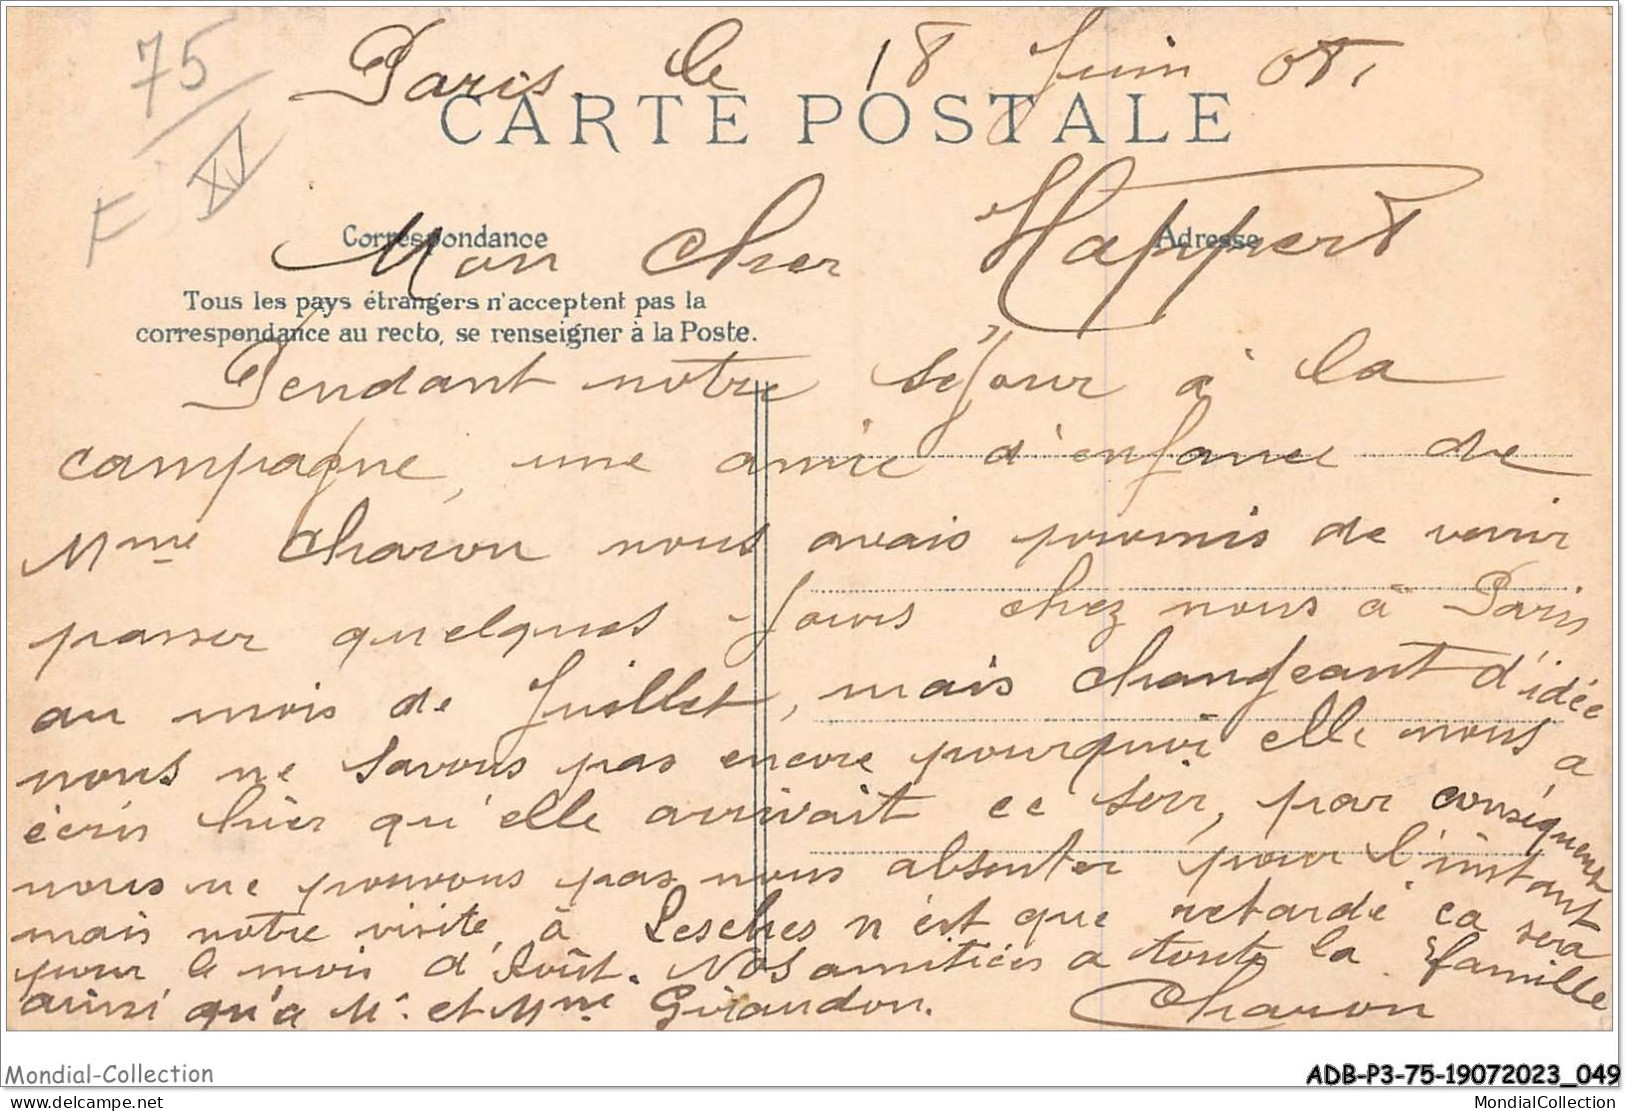 75
F XV
Paris le 18 Juin 08.
CARTE POSTALE
Correspondance
Adresse
Mon cher Happert
Tous les pays étrangers n'acceptent pas la
correspondance au recto, se renseigner à la Poste.
Pendant notre séjour à la
campagne, une amie d'enfance de
Mme Charon nous avais promis de venir
passer quelques jours chez nous à Paris
au mois de Juillet, mais changeant d'idée
nous ne savons pas encore pourquoi elle nous a
écris hier qu'elle arrivait ce soir, par conséquent
nous ne pouvons pas nous absenter pour l'instant
mais notre visite à Lesches n'est que retardé ça sera
pour le mois d'Août. Nos amitiés a toute la famille
ainsi qu'a Mr et Mme Giraudon. Charon
Mondial-Collection
ADB-P3-75-19072023_049
www.delcampe.net
MondialCollection